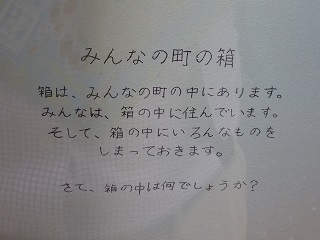 みんなの町の箱
箱は、みんなの町の中にあります。
みんなは、箱の中に住んでいます。
そして、箱の中にいろんなものを
しまっておきます。
さて、箱の中は何でしょうか？